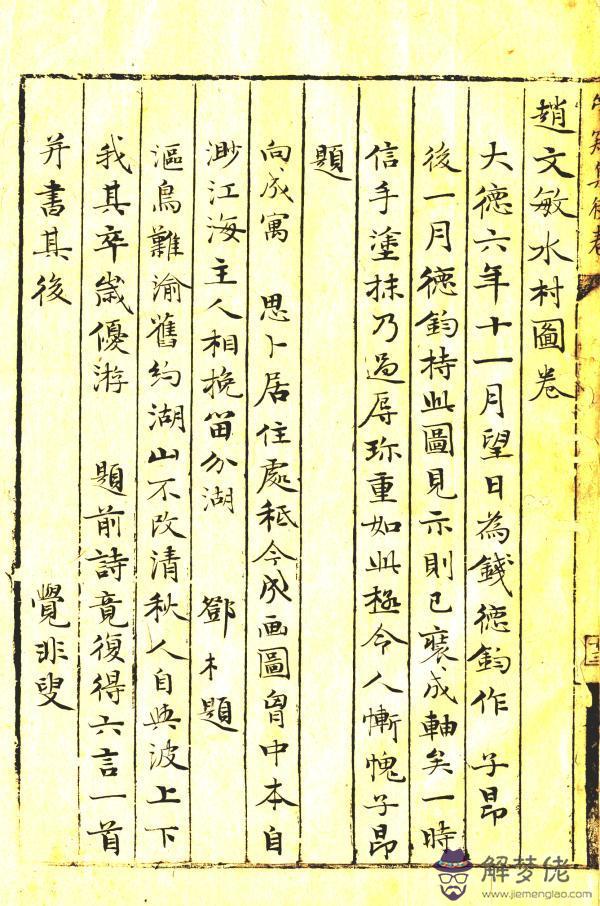 趙文敏水村圖卷
大德六年十一月望日為錢德鈞作 子昂
後一月德鈞持此圖見示則已成軸矣一時
信手塗抹乃過辱珍重如此極令人慚愧子昂
題
向成寓 思卜居住處秪今成画圖胷中本自
渺江海主人相挽留分湖 鄧木題
漚鳥難渝舊約湖山不改清秋人自與波上下
我其卒歲優游 題前詩竟復得六言一首
并書其後 覺非叟
解梦佬
www.jiemenglao.com